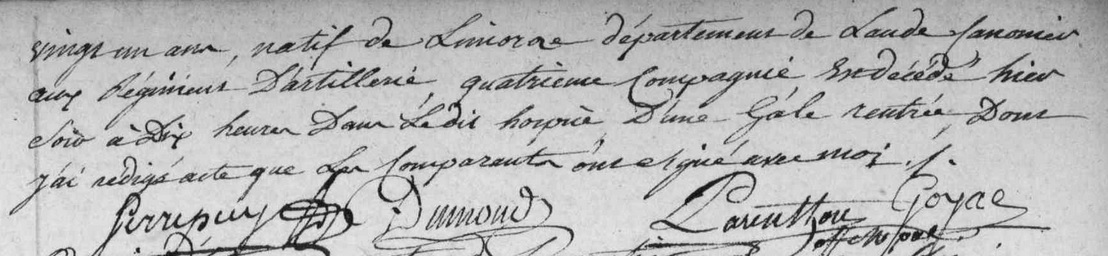 vingt un ans, natif de Limoræ département de Laude Canonier
aux Régiment D'artillerie, quatrieme Compagnie Est décédé hier
Soir à Dix heures Dans Ledit hospice D'une Gále rentrée, Dont
j'ai redigé acte que Les Comparants ont signé avec moi ./.
Dumond Parenthou Goyac
off. de